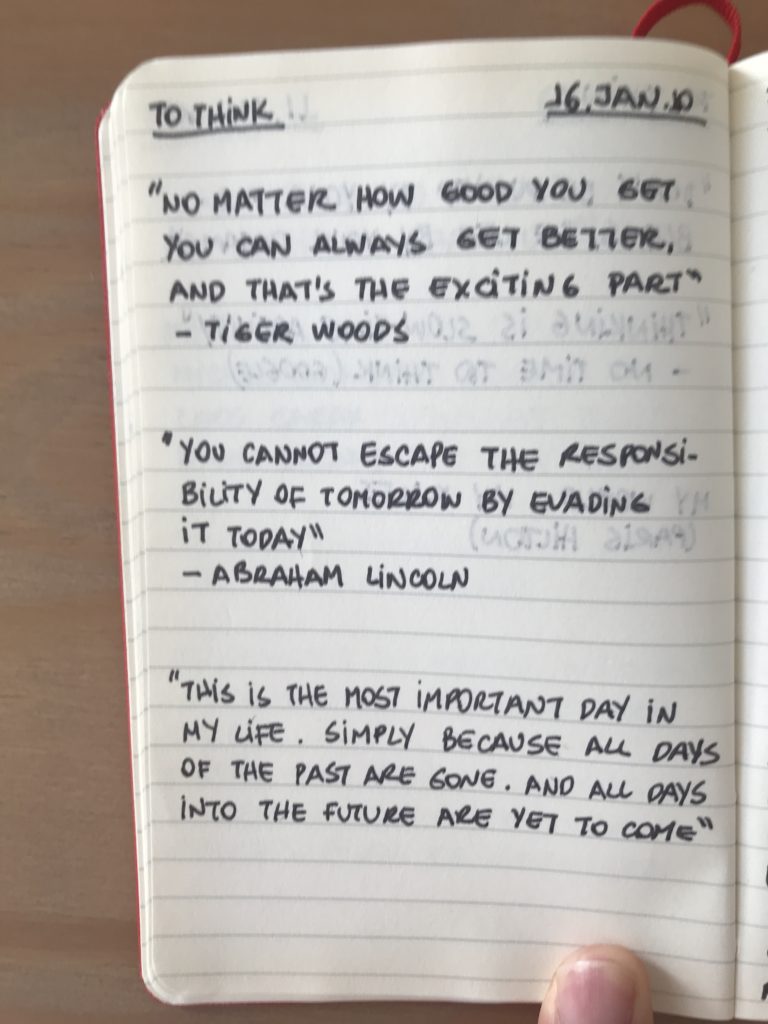 TO THINK 16.JAN.10
"NO MATTER HOW GOOD YOU GET
YOU CAN ALWAYS GET BETTER,
AND THAT'S THE EXCITING PART"
- TIGER WOODS
"YOU CANNOT ESCAPE THE RESPONSI-
BILITY OF TOMORROW BY EVADING
IT TODAY"
- ABRAHAM LINCOLN
"THIS IS THE MOST IMPORTANT DAY IN
MY LIFE. SIMPLY BECAUSE ALL DAYS
OF THE PAST ARE GONE. AND ALL DAYS
INTO THE FUTURE ARE YET TO COME"